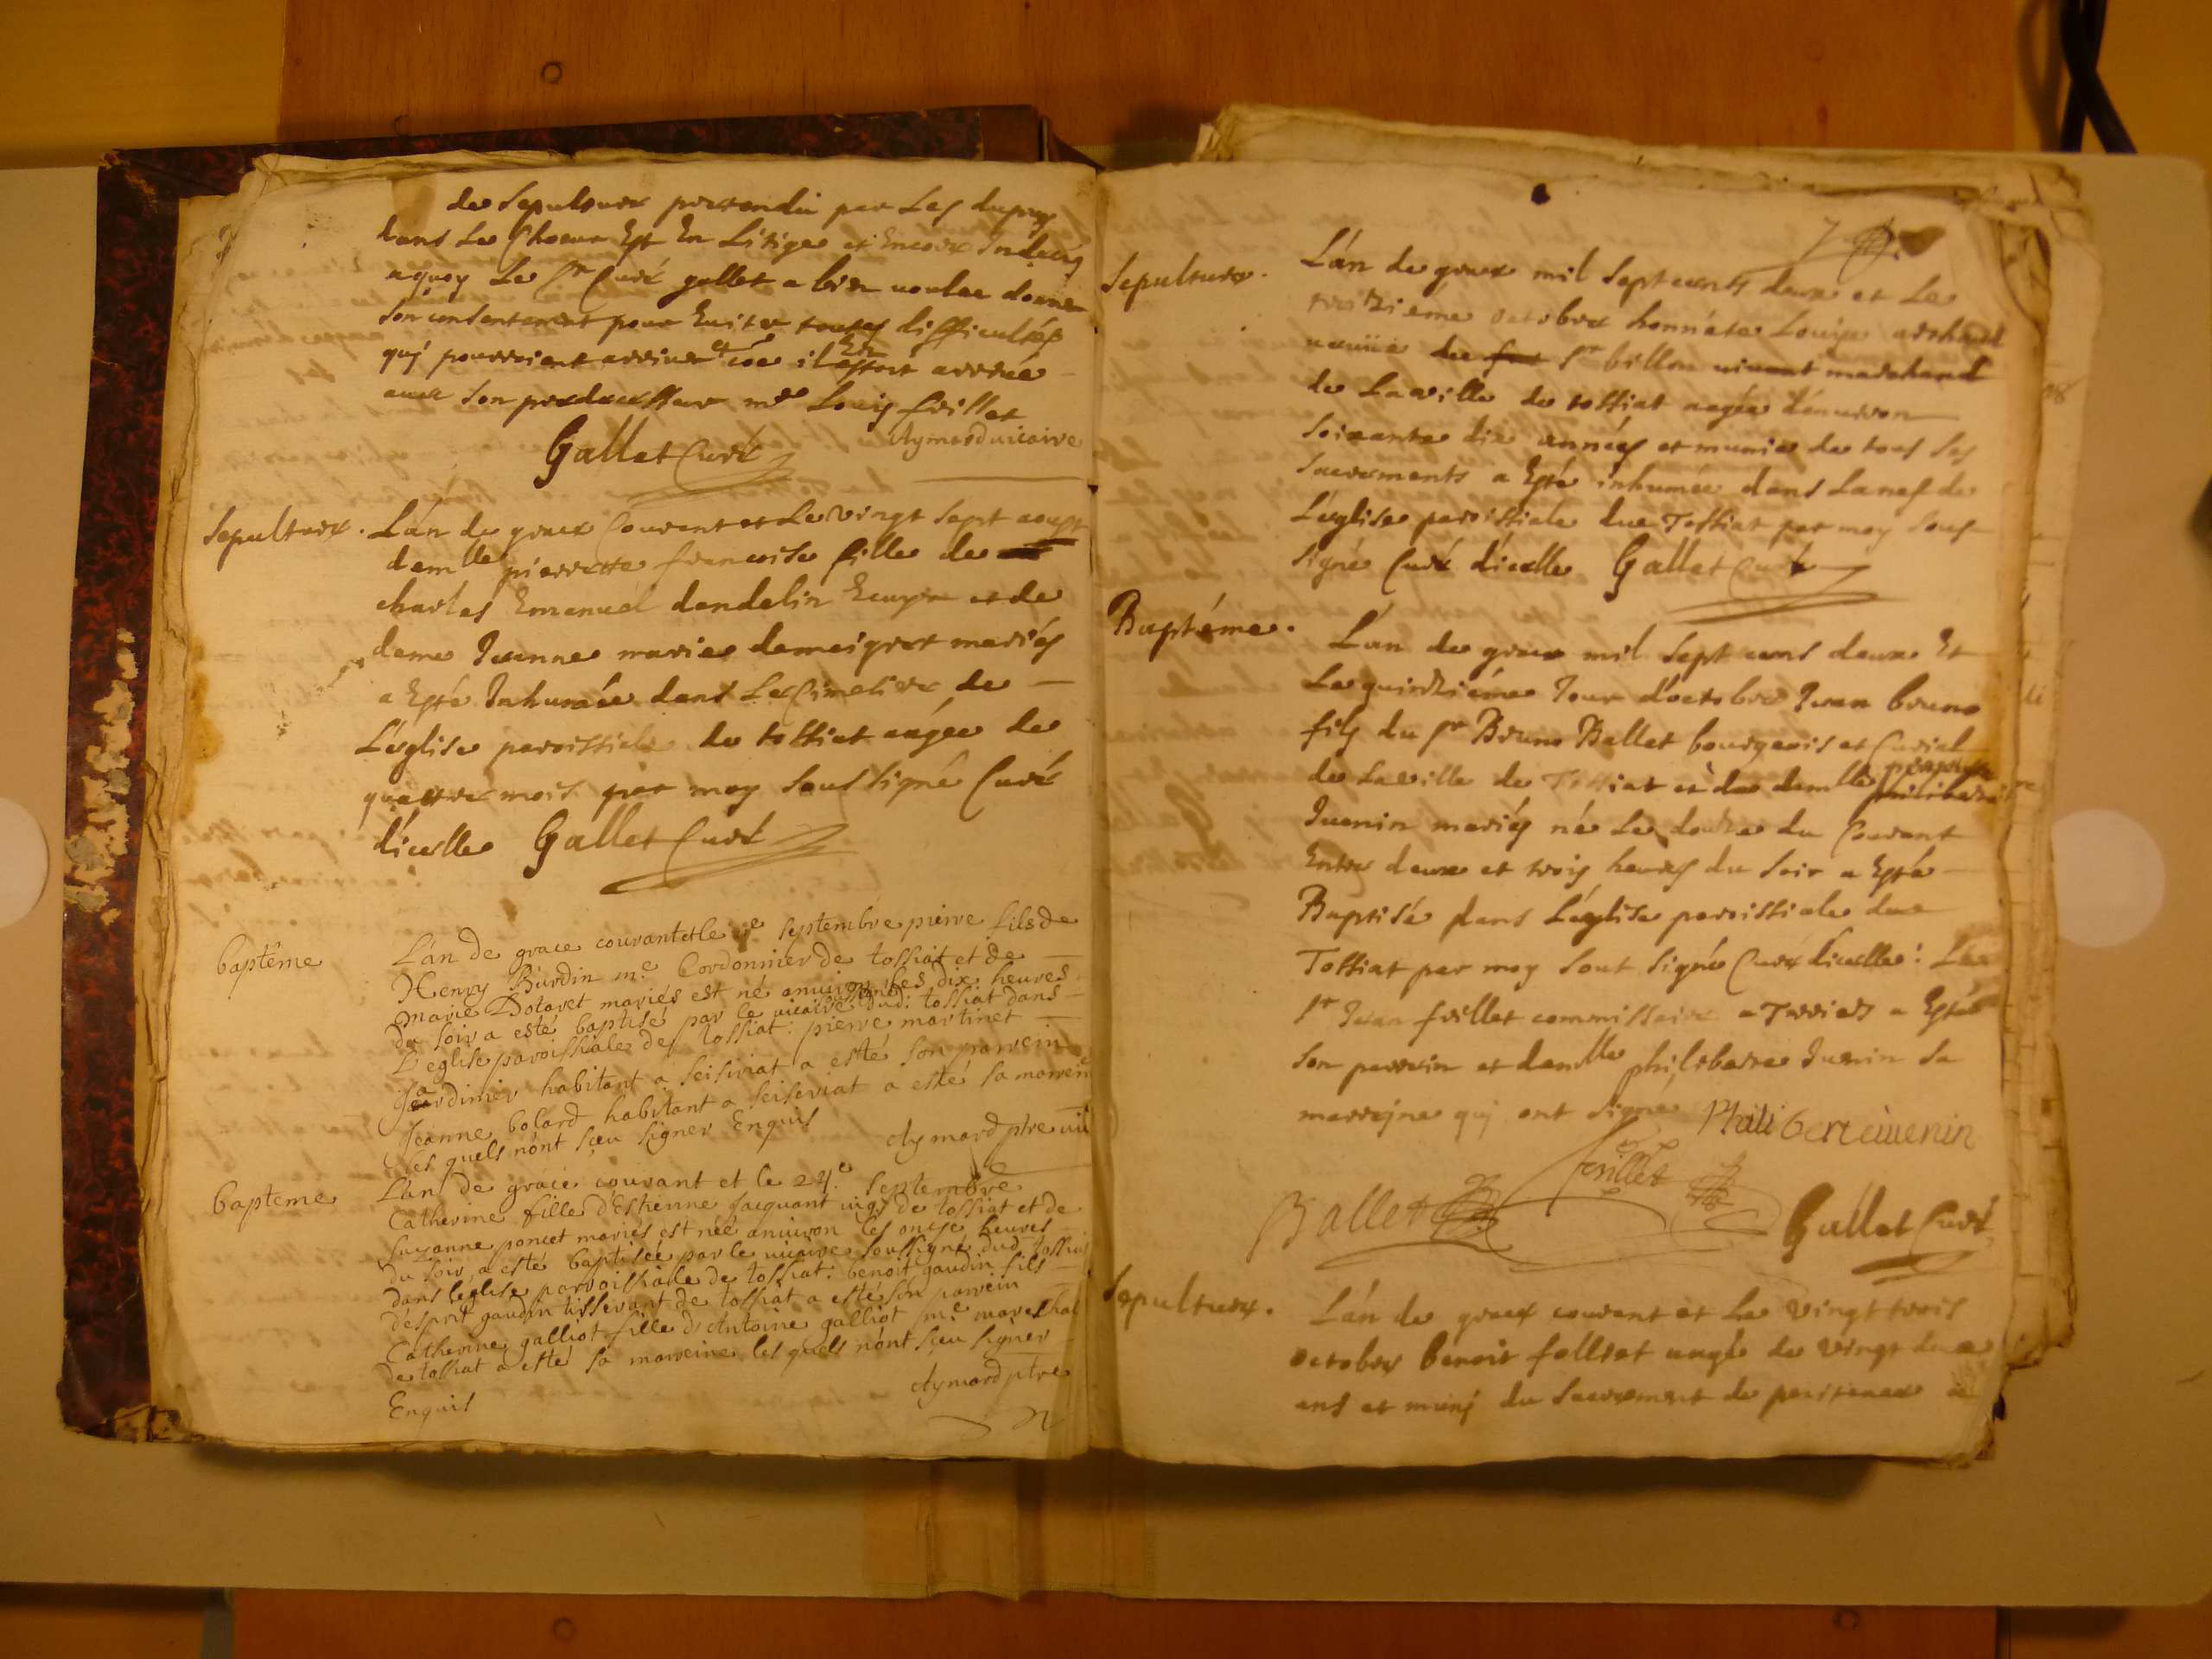 de Sepulture prettendu par Les dupuy
dans Le Choeur Est En Litige et Encore Indecis
a quoy Le Sr Curé gallet a bien voulu donner
son consentement pour Eviter toutes difficultés
quj pourroient arriver et coe il En estoit arrivé
avec son predecesseur mre Louis frillet
Gallet Curé
Aymard vicaire
Sepulture. L'án de grace Courant et Le vingt sept aoust
demlle pierrette francoise fille de
charles Emanuel dandelin Ecuyer et de
dame Jeanne marie demeigret mariés
a Esté Inhumée dans Le Cimetiere de
L'église paroissiale de tossiat aágée de
quattre mois par moy soussigné Curé
d'icelle Gallet Curé
baptême L'an de grace courant et le septembre pierre fils de
Henry Burdin me Cordonnier de tossiat et de
Marie Dotaret mariés est né anviron les dix heures
du soir a esté baptisé par le vicaire dud: tossiat dans
L'eglise paroissiale de tossiat: pierre martinet
Jardinier habitant a seisiriat a esté son parrein
Jeanne bolard habitant a seiseriat a esté sa marreine
les quels n'ont sçeu signer Enquis Aymard ptre vic
bapteme L'an de grace courant et le 24e septembre
Catherine fille d'Estienne Jacquant vigr de tossiat et de
Suzanne poncet mariés est née anviron les onze heures
du soir, a esté baptisée par le vicaire soussigné dud tossiat
dans l'eglise parroissialle de tossiat: benoit gaudin fils
d'esprit gaudin tisserant de tossiat a esté son parrein
Catherine galliot fille d'Antoine galliot me mareshal
de tossiat a esté sa marreine les quels n'ont sçeu signer
Enquis Aymard ptre
7
Sepulture. L'án de grace mil Sept cents deux et Le
treizième octobre honnéte Louise
veuve de Sr billon vivant marchand
de La ville de tossiat aagée d'énviron
soixante dix années et munie de tous ses
sacrements a Esté inhumée dans La nef de
L'église paroissiale de Tossiat par moy sous
signé Curé d'icelle Gallet Curé
Baptéme. L'an de grace mil sept cens deux Et
Le quinziéme Jour d'octobre Jean bruno
fils du Sr Bruno Ballet bourgeois et Curial
de La ville de Tossiat et de demlle
Juenin mariés né Le douze du Courant
Entre deux et trois heures du soir a Esté
Baptisé dans L'église paroissiale de
Tossiat par moy sous signé Curé d'icelle: Le
Sr Jean frillet commissaire a Esté
son parrein et demlle philiberte Juenin sa
marreine quj ont signé Philiberte iuenin
frillet
Ballet Gallet Curé
Sepulture. L'án de grace courant et Le vingt trois
octobre benoit folliet aagé de vingt deux
ans et munj du sacrement de penitence a